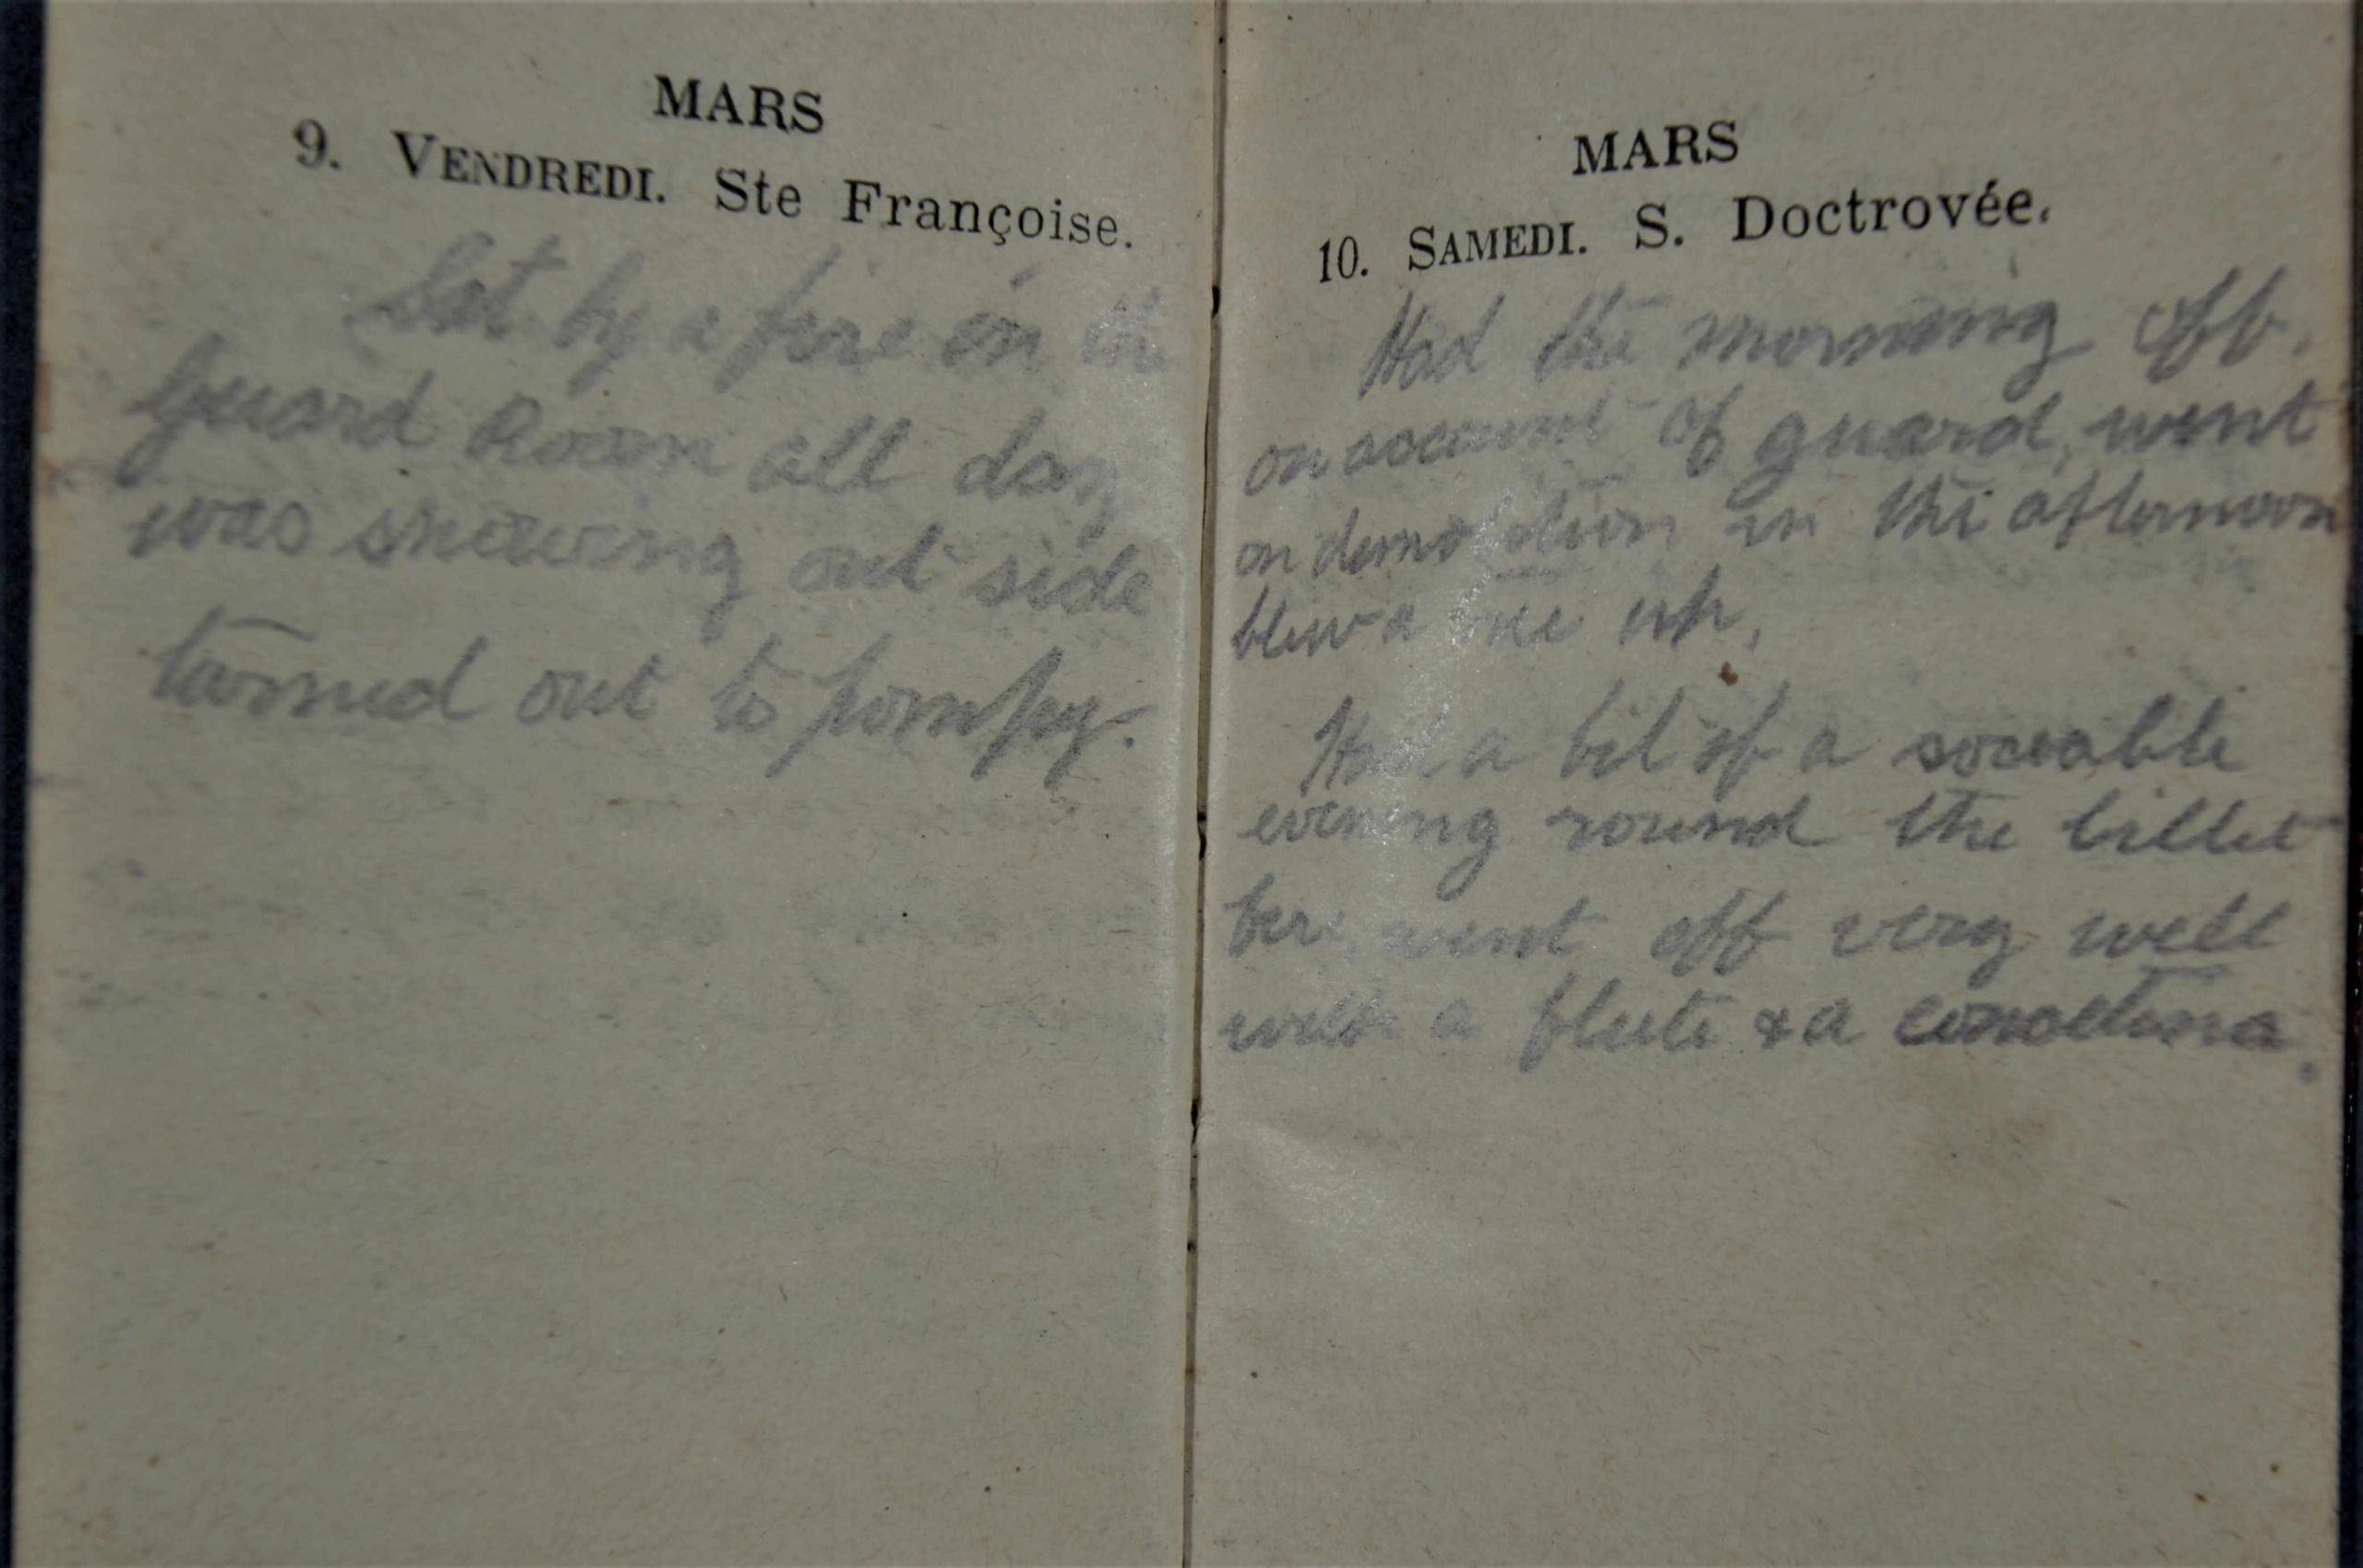 MARS
9. VENDREDI. Ste Françoise.
Sat by a fire in the
Guard Room all day
was snowing out side
turned out to pompey.
MARS
10. SAMEDI. S. Doctrovée.
Had the morning off.
on account of guard, went
on demolition in the afternoon
blew a tree up.
Had a bit of a sociable
evening round the billet
here, went off very well
with a flute & a concertina.